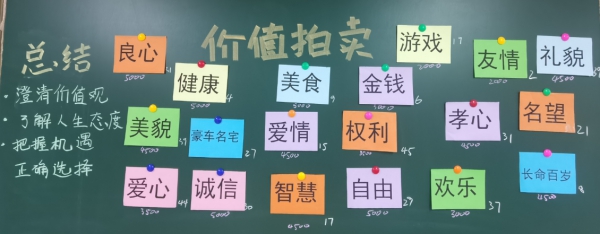 价值拍卖
总结
·澄清价值观
·了解人生态度
·把握机遇
正确选择
良心
5000
健康
5000
4
美食
5000
9
金钱
6
游戏
2000
17
友情
2
礼貌
美貌
4500
豪车名宅
27
爱情
4500
15
权利
45
孝心
4500
31
名望
21
爱心
3500
44
诚信
5000
智慧
4500
17
自由
5000
29
欢乐
3000
37
长命百岁
4500
8